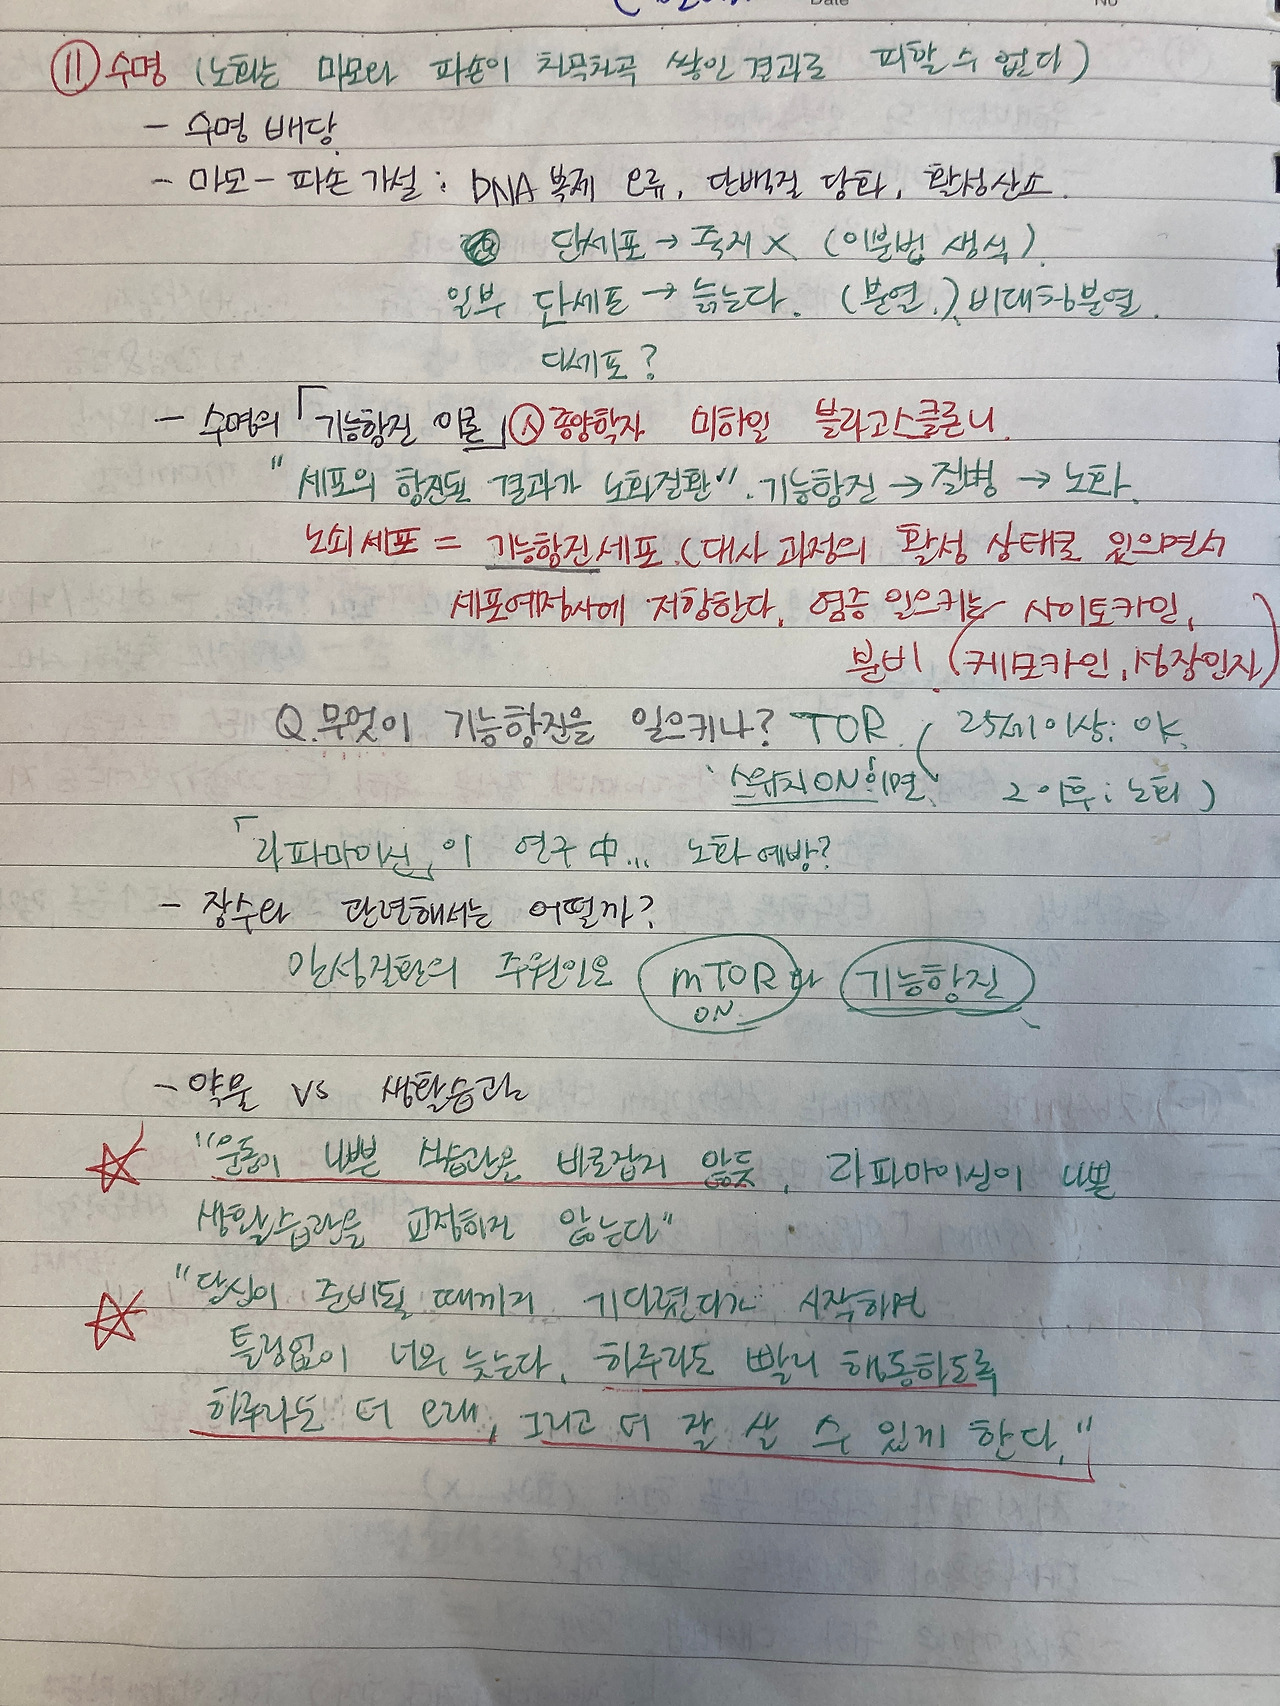 Date No
⑪ 수명 (노화는 마모와 파손이 차곡차곡 쌓인 결과로 피할 수 없다)
- 수명 배당
- 마모-파손 가설 : DNA 복제 오류, 단백질 당화, 활성산소.
단세포 → 독재 X (이분법 생식)
일부 단세포 → 늙는다. (분열.) 비대칭분열.
다세포?
- 수명의 「기능항진 이론」 종양학자 미하일 블라고스클론니.
"세포의 항진된 결과가 노화질환". 기능항진 → 질병 → 노화.
노쇠세포 = 기능항진세포. (대사 과정의 활성 상태로 있으면서
세포예정사에 저항한다. 염증 일으키는 사이토카인,
분비. (케모카인, 성장인자)
Q. 무엇이 기능항진을 일으키나? TOR. (25세이상: OK,
'스위치ON'이면. 그 이후: 노화)
「라파마이신」이 연구 中... 노화예방?
- 장수와 관련해서는 어떨까?
만성질환의 주원인은 mTOR와 기능항진
ON.
- 약물 vs 생활습관
☆ "운동이 나쁜 식습관을 바로잡지 않듯, 라파마이신이 나쁜
생활습관을 교정하지 않는다"
☆ "당신이 준비될 때까지 기다렸다가 시작하면
틀림없이 너무 늦는다. 하루라도 빨리 행동하도록
하루라도 더 오래, 그리고 더 잘 살 수 있게 한다."